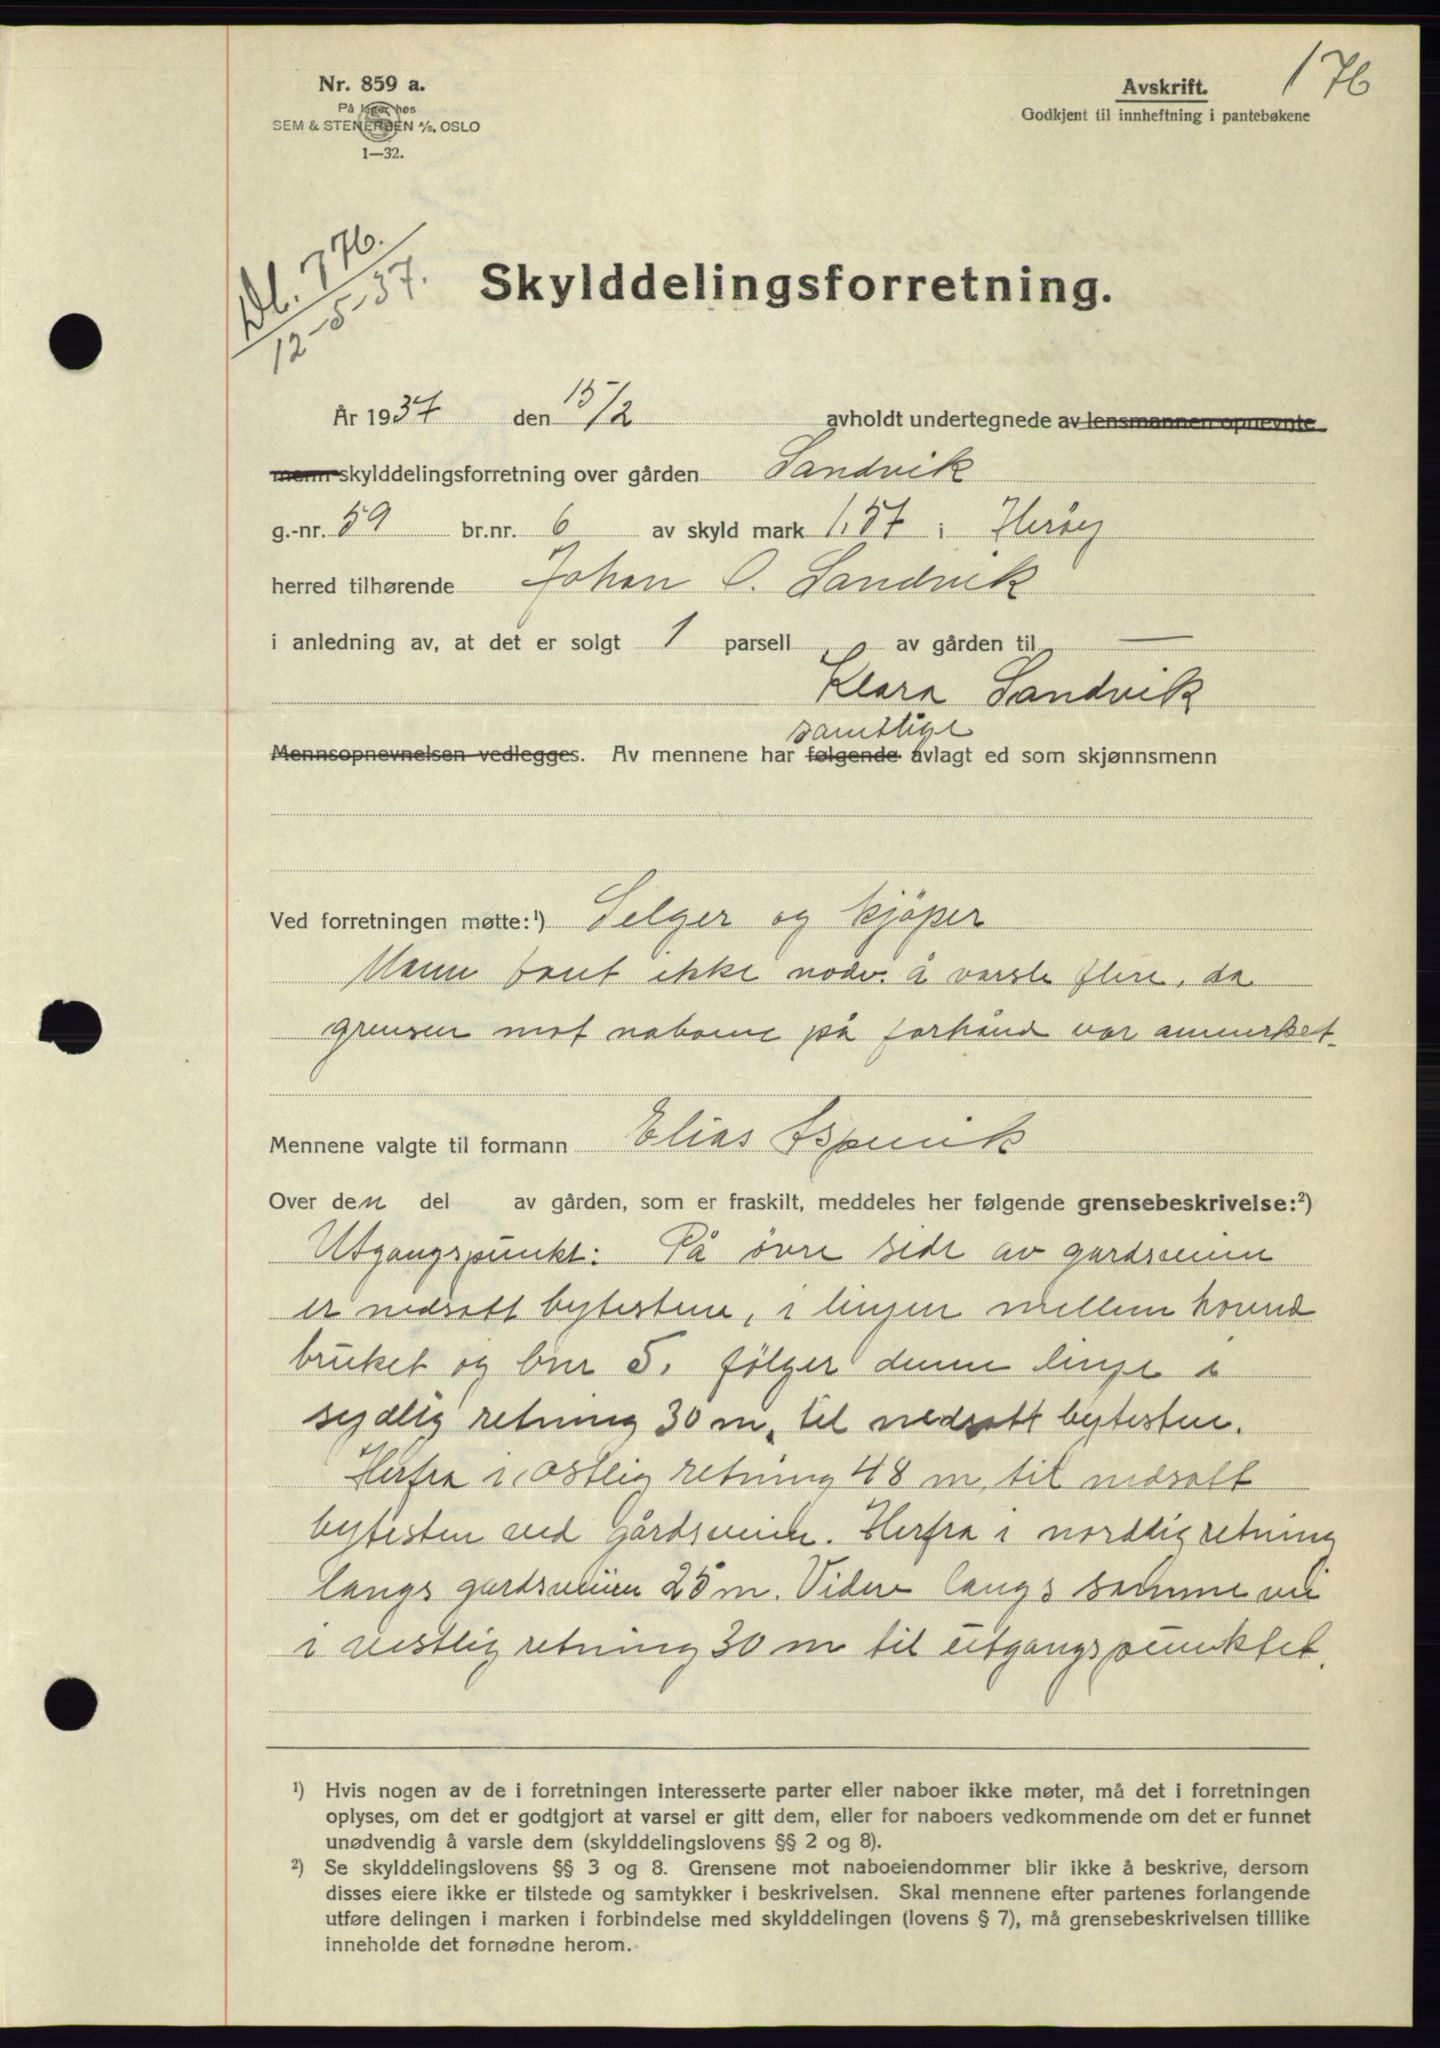 176
Nr. 859 a.
På lager hos
SEM & STENERSEN A/S, OSLO
1—32.
Avskrift.
Godkjent til innheftning i pantebøkene
Dl. 776.
12-5-37.
Skylddelingsforretning.
År 1937 den 15/2 avholdt undertegnede av lensmannen opnevnte
menn skylddelingsforretning over gården Sandvik
g.-nr. 59 br.nr. 6 av skyld mark 1,57 i Herøy
herred tilhørende Johan O. Sandvik
i anledning av, at det er solgt 1 parsell av gården til —
Klara Sandvik
samtlige
Mennsopnevnelsen vedlegges. Av mennene har følgende avlagt ed som skjønnsmenn
Ved forretningen møtte:¹) Selger og kjöper
Menn fant ikke nödv. å varsle flere, da
grensen mot naboene på forhånd var anmerket.
Mennene valgte til formann Elias
Over den del av gården, som er fraskilt, meddeles her følgende grensebeskrivelse:²)
Utgangspunkt: På övre side av gardsveien
er nedsatt bytesten, i linjen mellem hoved
bruket og bnr 5. följer denne linje i
sydlig retning 30 m, til nedsatt bytesten.
Herfra i östlig retning 48 m, til nedsatt
bytesten ved gårdsveien. Herfra i nordlig retning
langs gardsveien 25 m. Videre langs samme vei
i vestlig retning 30 m til utgangspunktet.
¹) Hvis nogen av de i forretningen interesserte parter eller naboer ikke møter, må det i forretningen
oplyses, om det er godtgjort at varsel er gitt dem, eller for naboers vedkommende om det er funnet
unødvendig å varsle dem (skylddelingslovens §§ 2 og 8).
²) Se skylddelingslovens §§ 3 og 8. Grensene mot naboeiendommer blir ikke å beskrive, dersom
disses eiere ikke er tilstede og samtykker i beskrivelsen. Skal mennene efter partenes forlangende
utføre delingen i marken i forbindelse med skylddelingen (lovens § 7), må grensebeskrivelsen tillike
inneholde det fornødne herom.